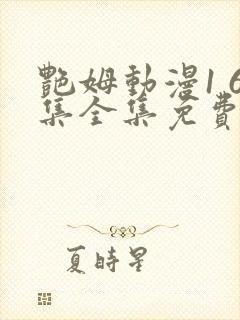 艷姆動漫16
集全集免費
夏時星